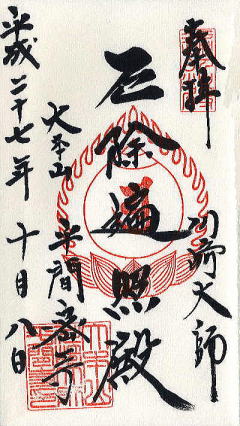 奉拝
川崎大師
厄除遍照殿
大本山 平間寺
平成二十七年 十月八日